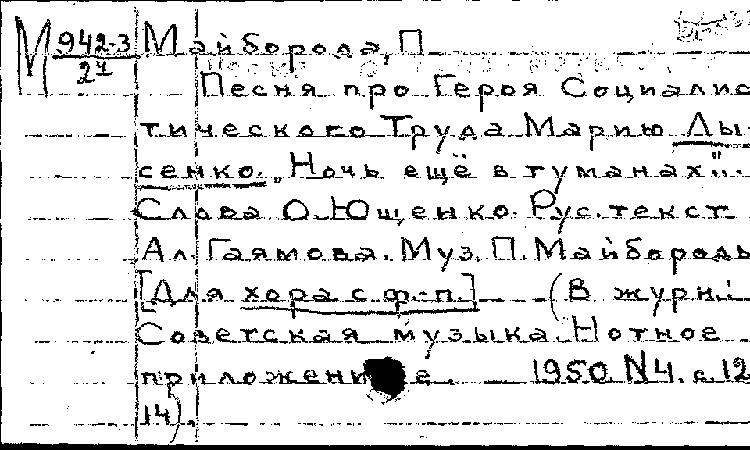 М 942-3 Майборода, П
24
Песня про Героя Социалис
тического Труда Марию Лы
сенко. „Ночь ещё в туманах"..
Слова О. Ющенко. Рус. текст
Ал. Гаямова. Муз. П. Майбороды
[Для хора с ф.-п.] — (В журн.:
Советская музыка. Нотное
приложение. — 1950. N4. с. 12
14).